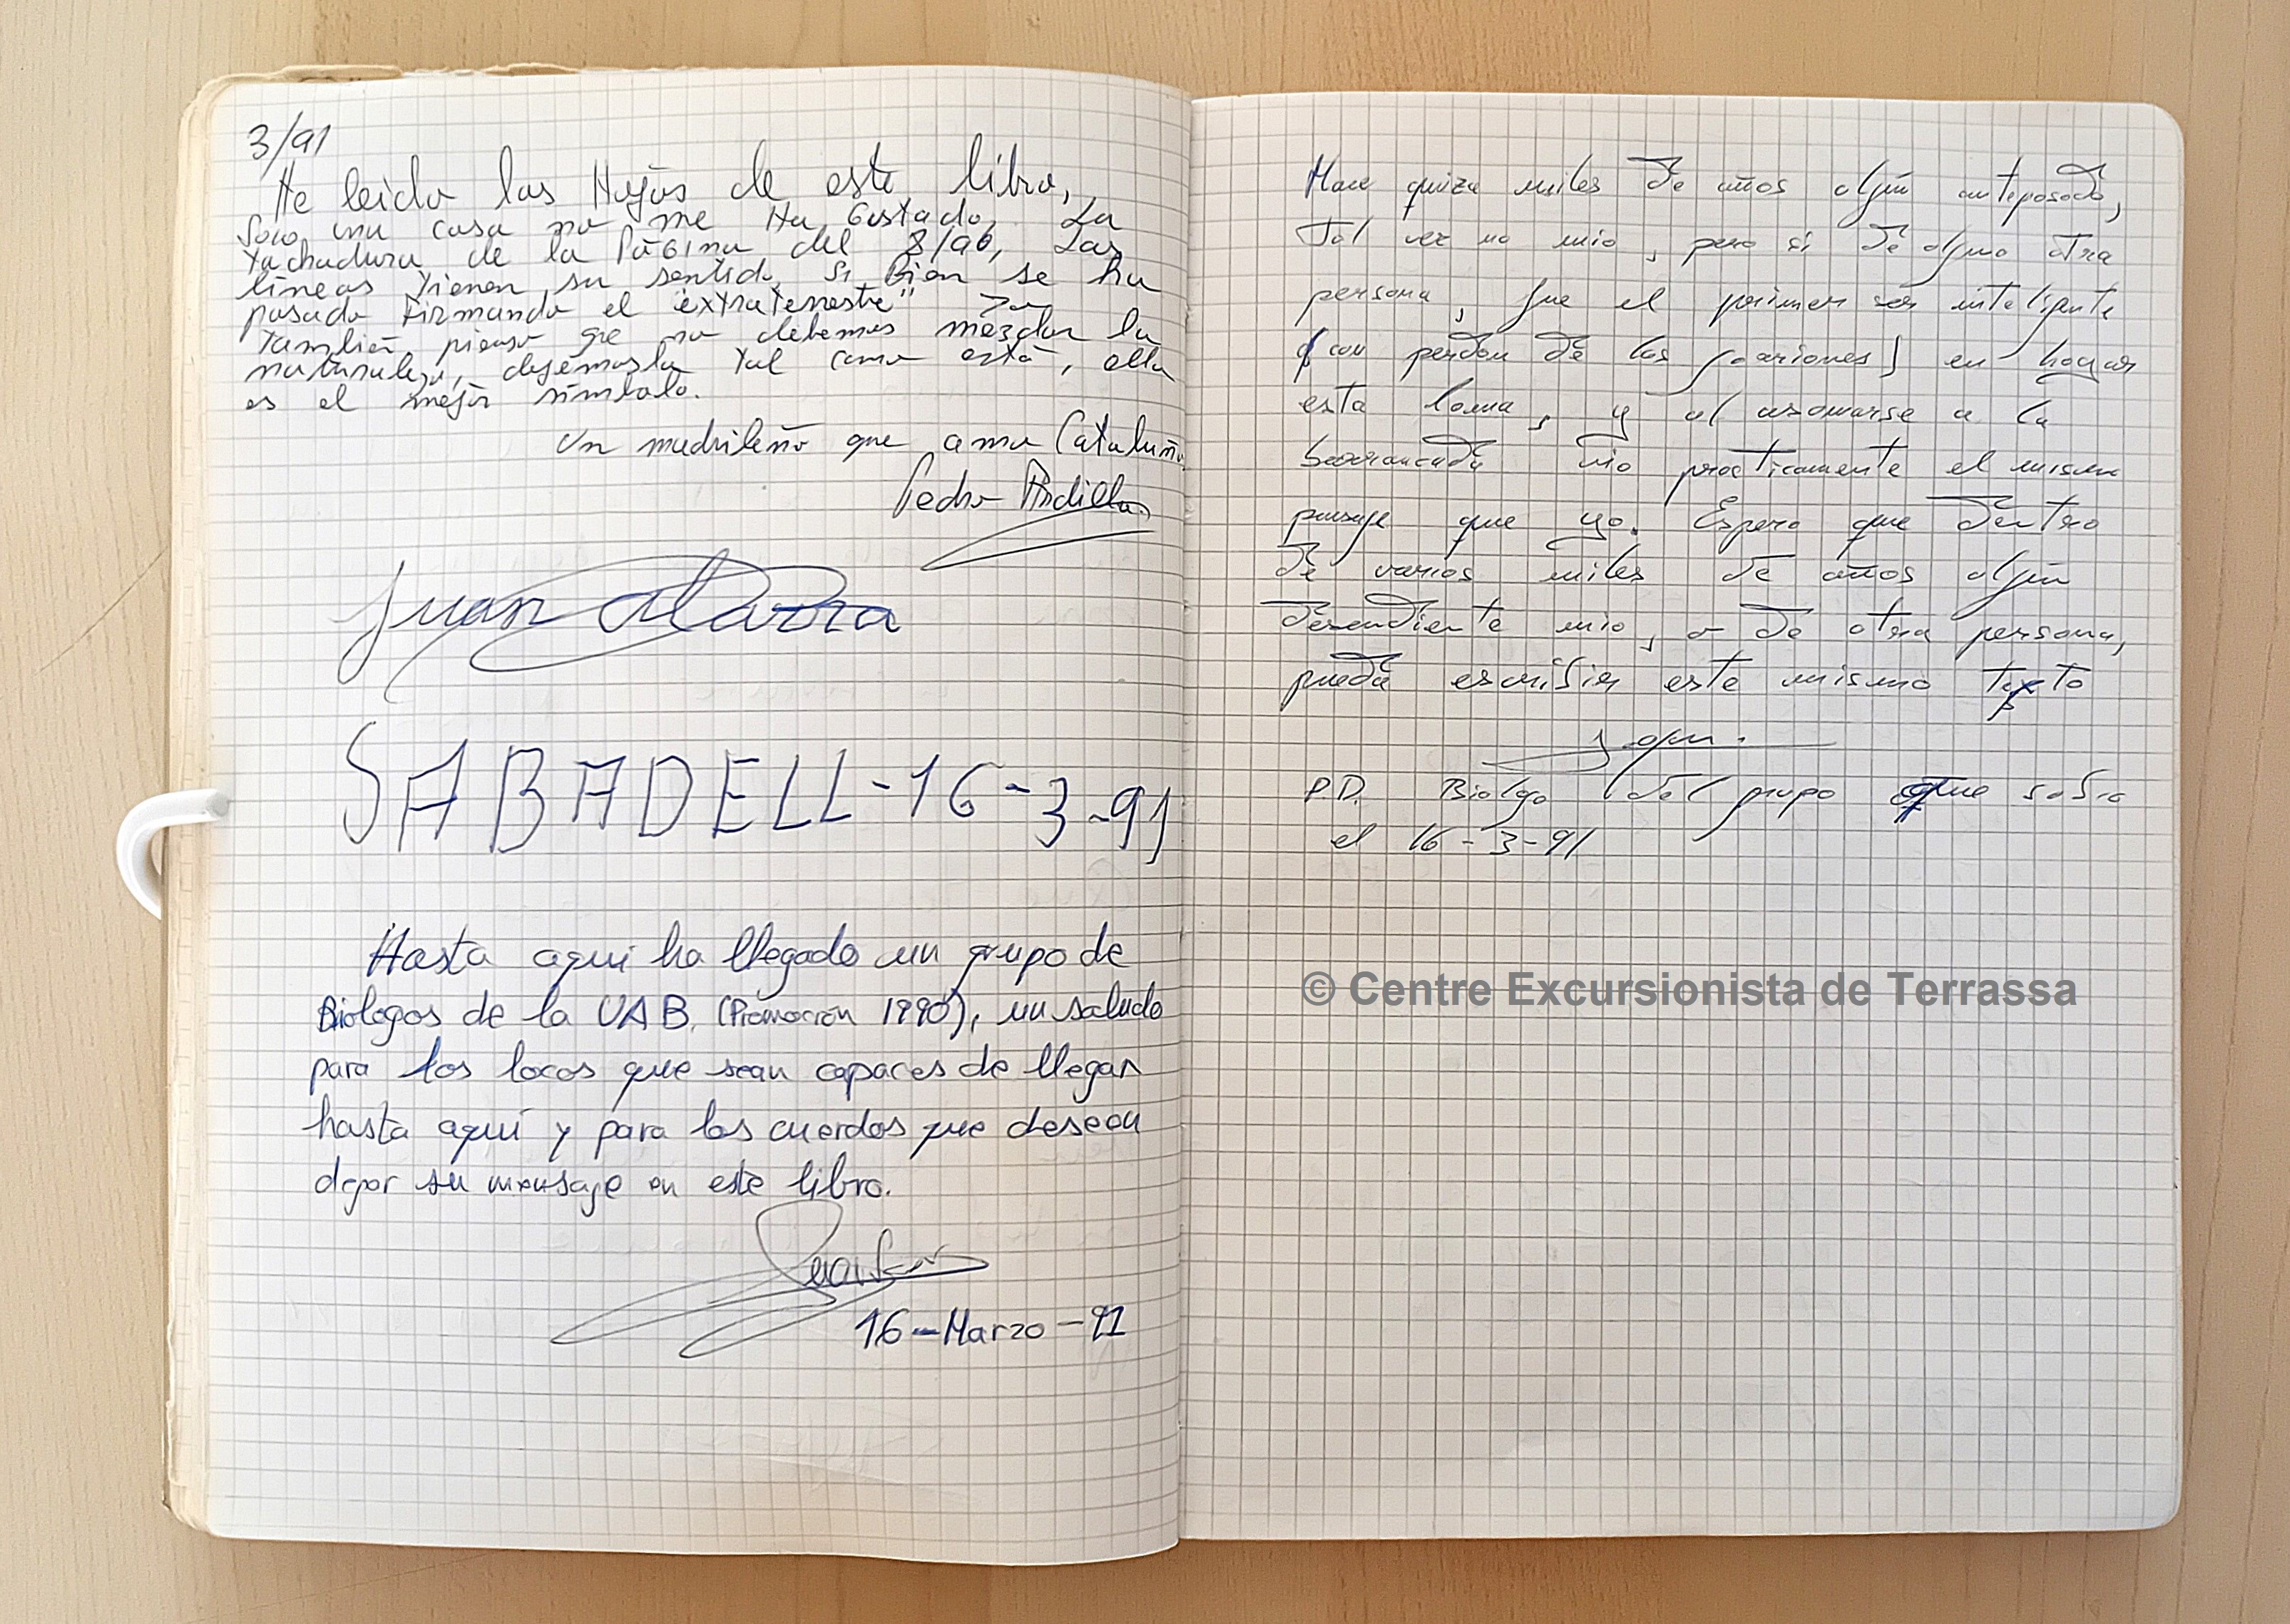 3/91
He leido las Hojas de este libro,
Solo una cosa no me Ha Gustado, La
tachadura de la PáGina del 8/90, Las
lineas tienen su sentido, si Bien se ha
pasado firmando el "extraterrestre" Yo
también pienso que no debemos mezclar la
naturaleza, dejémosla tal como está, ella
es el mejor símbolo.
Un madrileño que ama Cataluña
Pedro
Juan
SABADELL-16-3-91
Hasta aqui ha llegado un grupo de
Biologos de la UAB. (Promoción 1990), un saludo
para los locos que sean capaces de llegar
hasta aquí y para los cuerdos que deseen
dejar su mensaje en este libro.
16-Marzo-91
Hace quiza miles de años algún antepasado,
Tal vez no mio, pero si de alguna otra
persona, fue el primer ser inteligente
(con perdon de los ) en hogar
esta loma, y al asomarse a la
barrancada vio practicamente el mismo
paisaje que yo. Espero que dentro
de varios miles de años algún
desendiente mio, o de otra persona,
pueda escribir este mismo texto
P.D. Biologo del grupo que subio
el 16-3-91
© Centre Excursionista de Terrassa